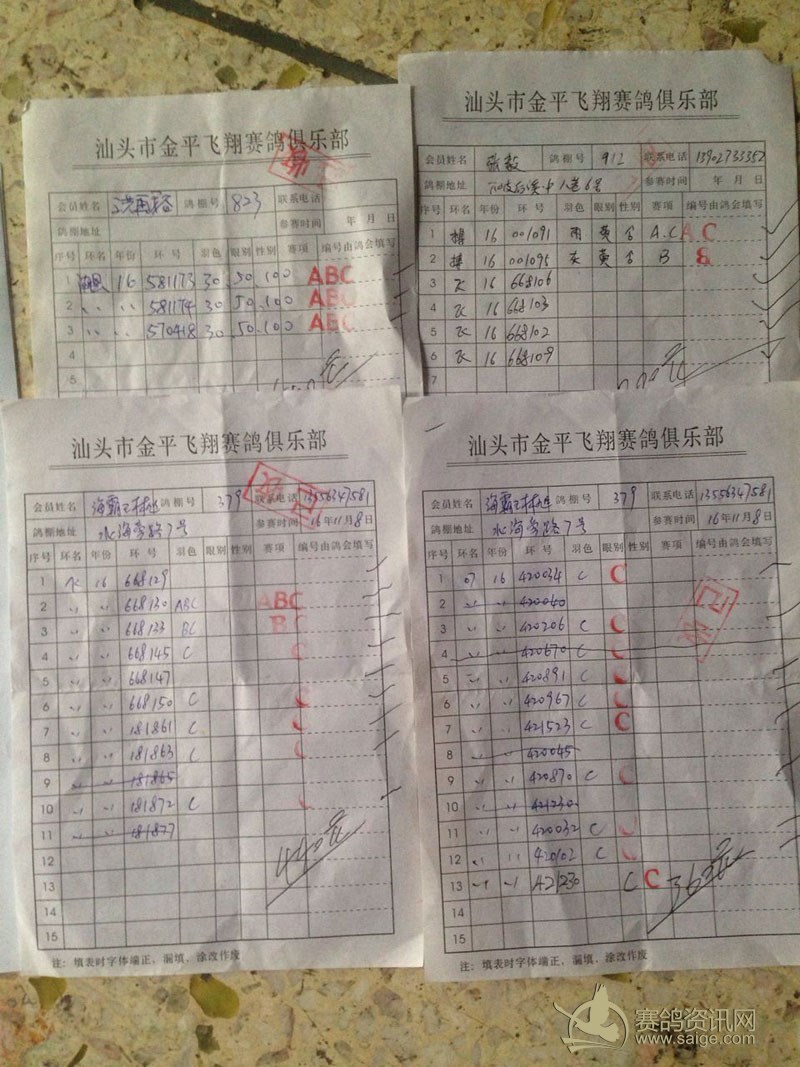 汕头市金平飞翔赛鸽俱乐部
会员姓名 鸽棚号 823 联系电话
鸽棚地址 参赛时间 年 月 日
序号 环名 年份 环 号 羽色 眼别 性别 赛项 编号由鸽会填写
1 16 581173 30.50.100 ABC
2 〃 〃 581174 30.50.100 ABC
3 〃 〃 570418 30.50.100 ABC
4
5
汕头市金平飞翔赛鸽俱乐部
会员姓名 鸽棚号 912 联系电话 13902733352
鸽棚地址 6号 参赛时间 年 月 日
序号 环名 年份 环 号 羽色 眼别 性别 赛项 编号由鸽会填写
1 16 001091 雨 黄 A.C A C
2 16 001095 灰 黄 B B
3 16 668106
4 16 668103
5 16 668102
6 16 668109
7
汕头市金平飞翔赛鸽俱乐部
会员姓名 鸽棚号 379 联系电话 13556347581
鸽棚地址 7号 参赛时间 16年11月8日
序号 环名 年份 环 号 羽色 眼别 性别 赛项 编号由鸽会填写
1 16 668129
2 〃 〃 668130 ABC ABC
3 〃 〃 668133 BC BC
4 〃 〃 668145 C C
5 〃 〃 668147
6 〃 〃 668150 C C
7 〃 〃 181861 C C
8 〃 〃 181863 C C
9 〃 〃 181865
10 〃 〃 181872 C C
11 〃 〃 181877
12
13
14
15
440元
注：填表时字体端正、漏填、涂改作废
汕头市金平飞翔赛鸽俱乐部
会员姓名 鸽棚号 379 联系电话 13556347581
鸽棚地址 7号 参赛时间 16年11月8日
序号 环名 年份 环 号 羽色 眼别 性别 赛项 编号由鸽会填写
1 07 16 420034 C C
2 〃 〃 420040
3 〃 〃 420206 C C
4 〃 〃 420670 C C
5 〃 〃 420891 C C
6 〃 〃 420967 C C
7 〃 〃 421523 C C
8 〃 〃 420045
9 〃 〃 420870 C C
10 〃 〃 421230
11 〃 〃 420032 C C
12 〃 〃 420102 C C
13 〃 〃 421230 C C
14
15
360元
注：填表时字体端正、漏填、涂改作废
赛鸽资讯网
www.saige.com